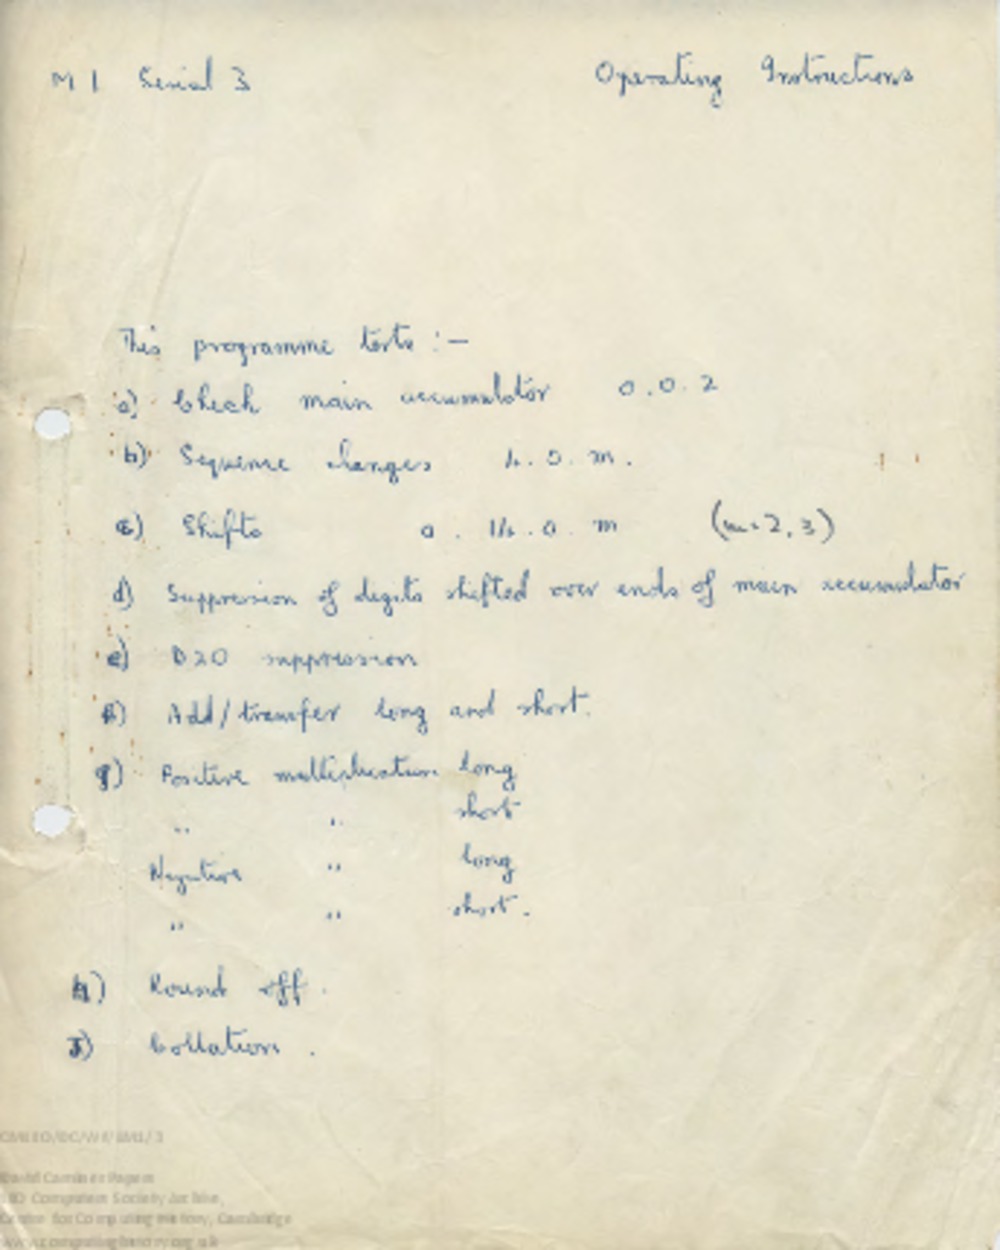 M 1 Serial 3 Operating Instructions
This programme tests :-
a) Check main accumulator 0.0.2
b) Sequence changes 4.0.m.
c) Shifts 0.14.0.m (m=2,3)
d) Suppression of digits shifted over ends of main accumulator
e) D20 suppression
f) Add/transfer long and short.
g) Positive multiplication long
" " short
Negative " long
" " short.
h) Round off.
j) Collation.
David Caminer Papers
LEO Computers Society Archive,
Centre for Computing History, Cambridge
www.computinghistory.org.uk